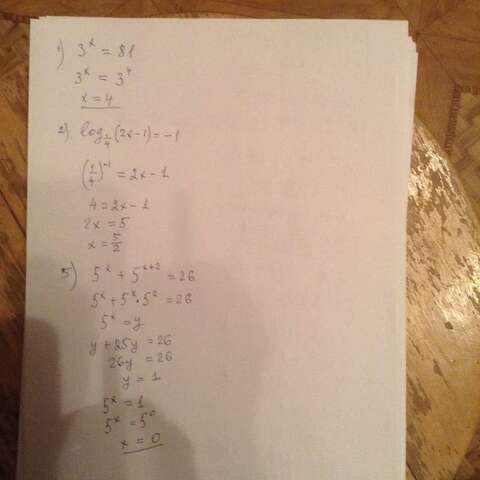 1) 3^x = 81
3^x = 3^4
x = 4
2) log_{1/4}(2x-1) = -1
(1/4)^{-1} = 2x - 1
4 = 2x - 1
2x = 5
x = 5/2
3) 5^x + 5^{x+2} = 26
5^x + 5^x · 5^2 = 26
5^x = y
y + 25y = 26
26y = 26
y = 1
5^x = 1
5^x = 5^0
x = 0